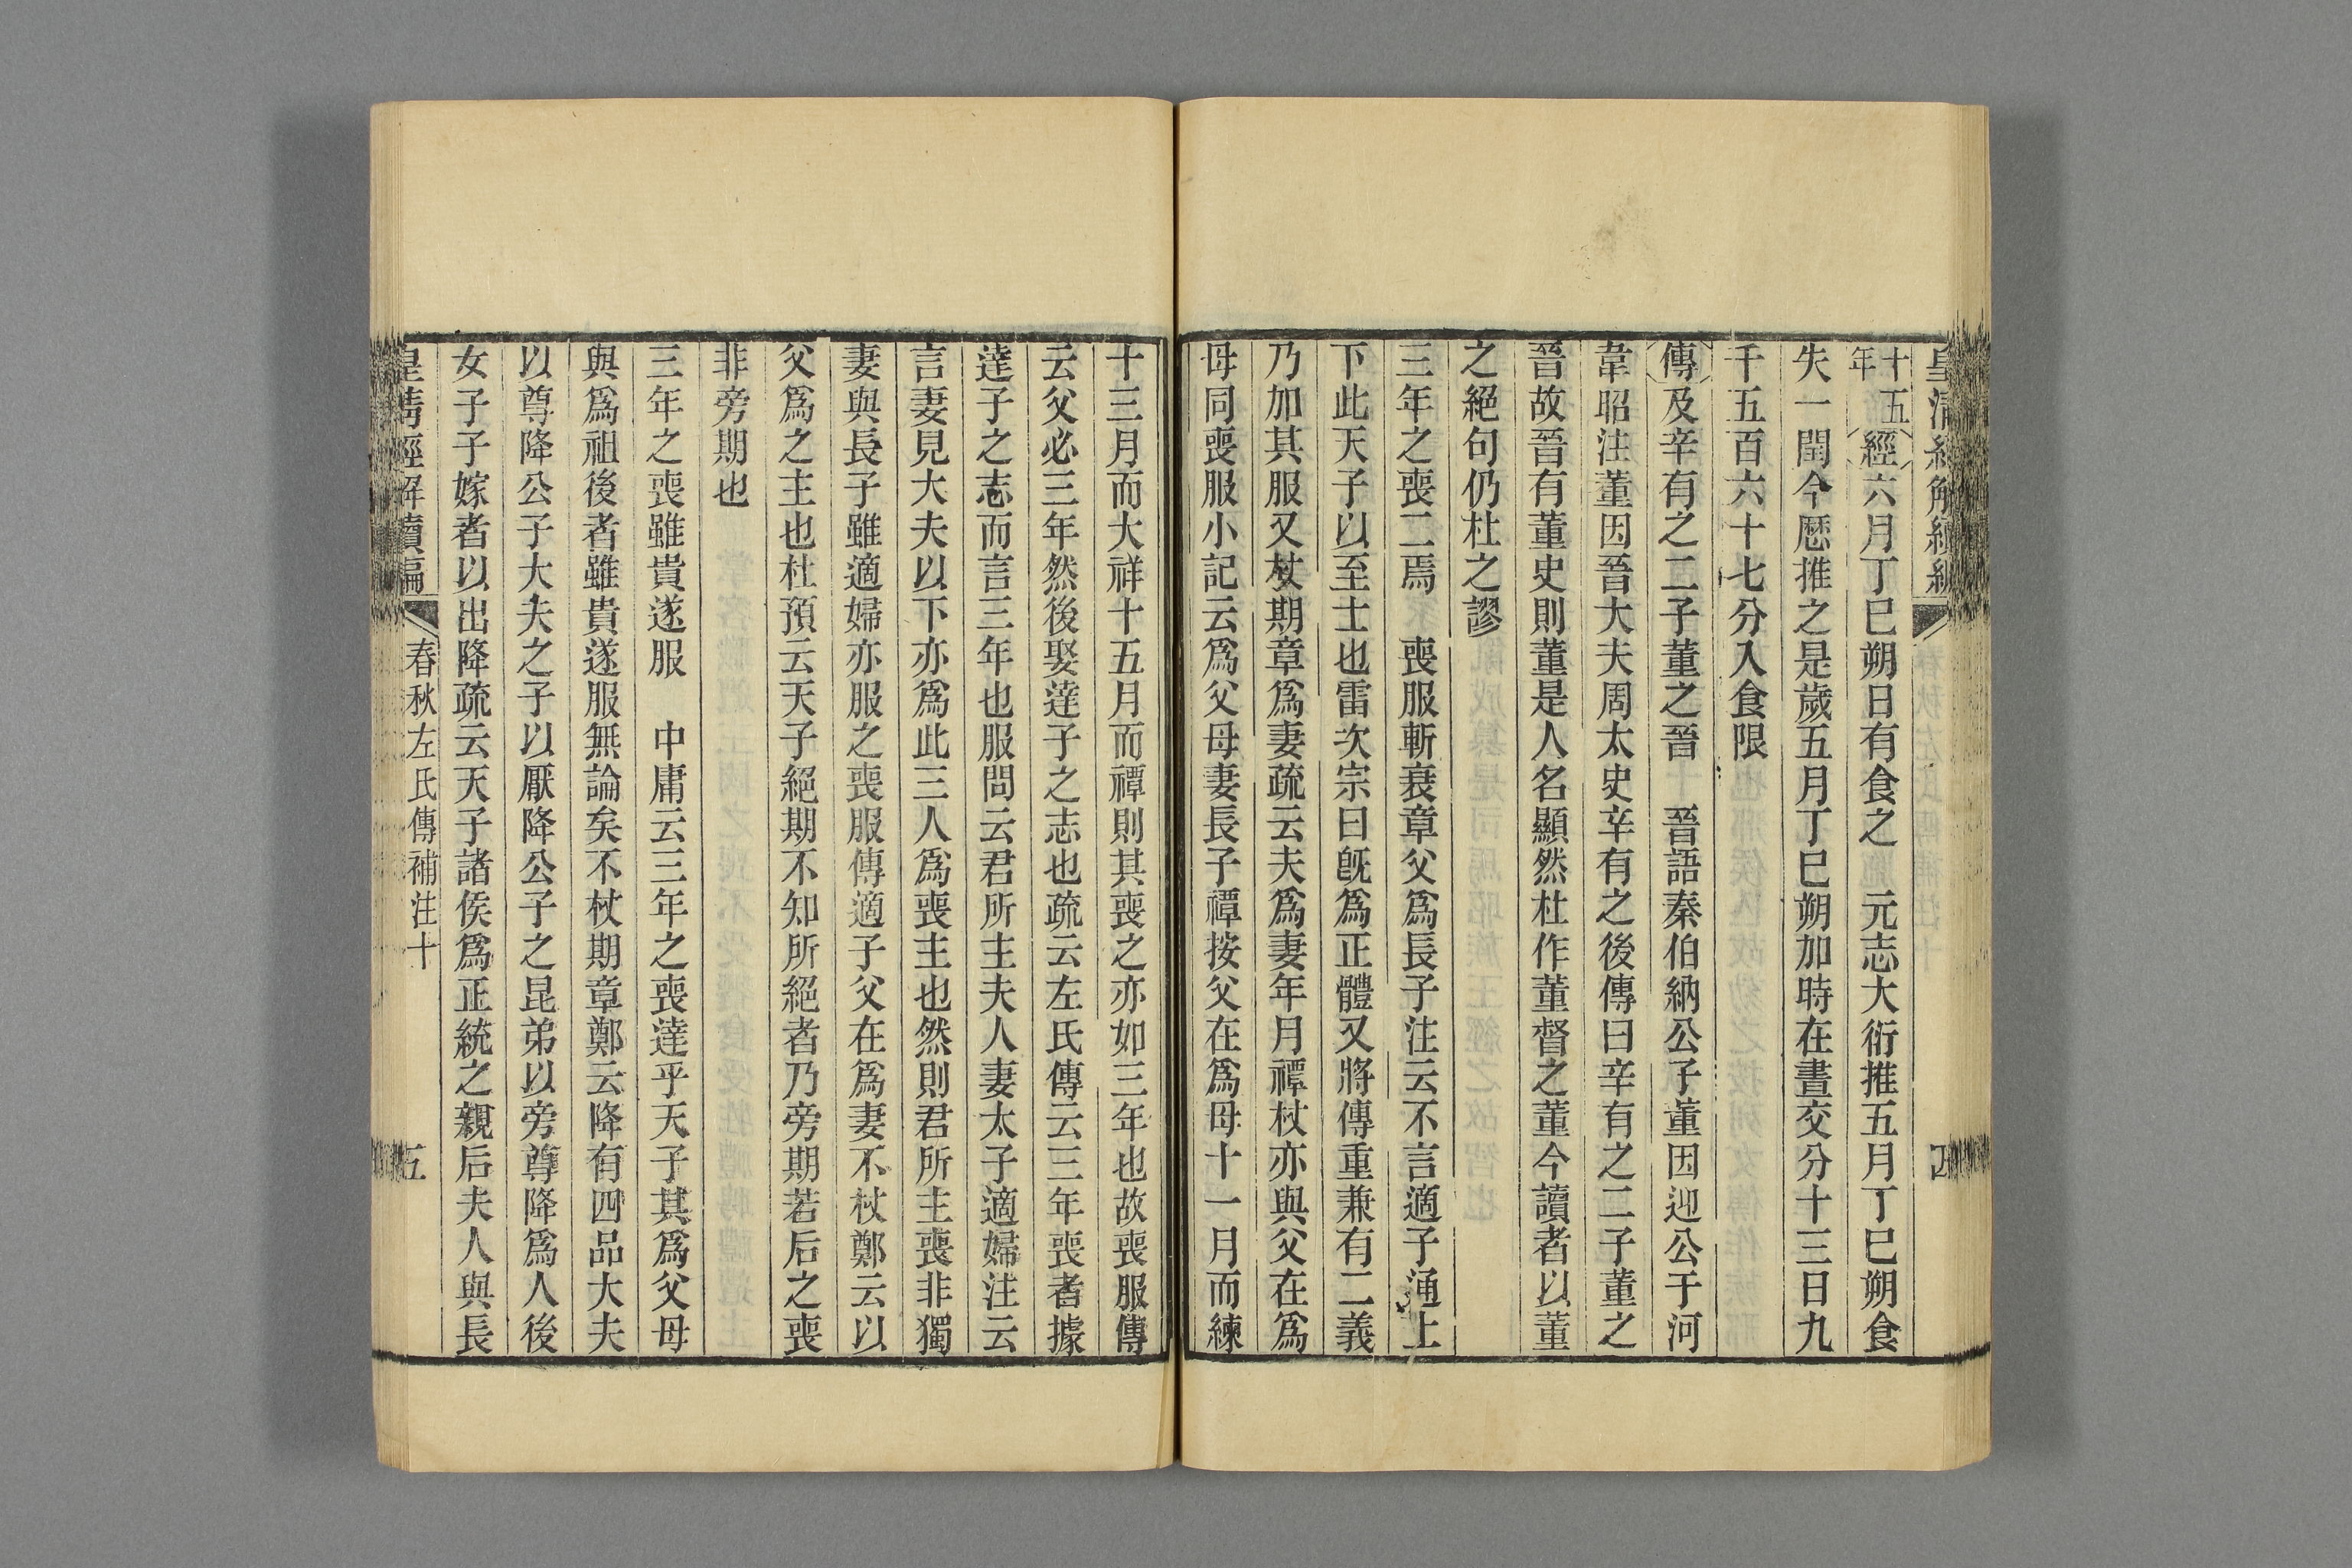 皇清經解續編 春秋左氏傳補注十 四
十五年 經六月丁巳朔日有食之 元志大衍推五月丁巳朔食
失一閏今厯推之是歲五月丁巳朔加時在晝交分十三日九
千五百六十七分入食限
傳及辛有之二子董之晉 晉語秦伯納公子董因迎公于河
韋昭注董因晉大夫周太史辛有之後傳曰辛有之二子董之
晉故晉有董史則董是人名顯然杜作董督之董今讀者以董
之絕句仍杜之謬
三年之喪二焉 喪服斬衰章父爲長子注云不言適子通上
下此天子以至士也雷次宗曰旣爲正體又將傳重兼有二義
乃加其服又杖期章爲妻疏云夫爲妻年月禫杖亦與父在爲
母同喪服小記云爲父母妻長子禫按父在爲母十一月而練
十三月而大祥十五月而禫則其喪之亦如三年也故喪服傳
云父必三年然後娶達子之志也疏云左氏傳云三年喪者據
達子之志而言三年也服問云君所主夫人妻太子適婦注云
言妻見大夫以下亦爲此三人爲喪主也然則君所主喪非獨
妻與長子雖適婦亦服之喪服傳適子父在爲妻不杖鄭云以
父爲之主也杜預云天子絕期不知所絕者乃旁期若后之喪
非旁期也
三年之喪雖貴遂服 中庸云三年之喪達乎天子其爲父母
與爲祖後者雖貴遂服無論矣不杖期章鄭云降有四品大夫
以尊降公子大夫之子以厭降公子之昆弟以旁尊降爲人後
女子子嫁者以出降疏云天子諸侯爲正統之親后夫人與長
皇清經解續編 春秋左氏傳補注十 五